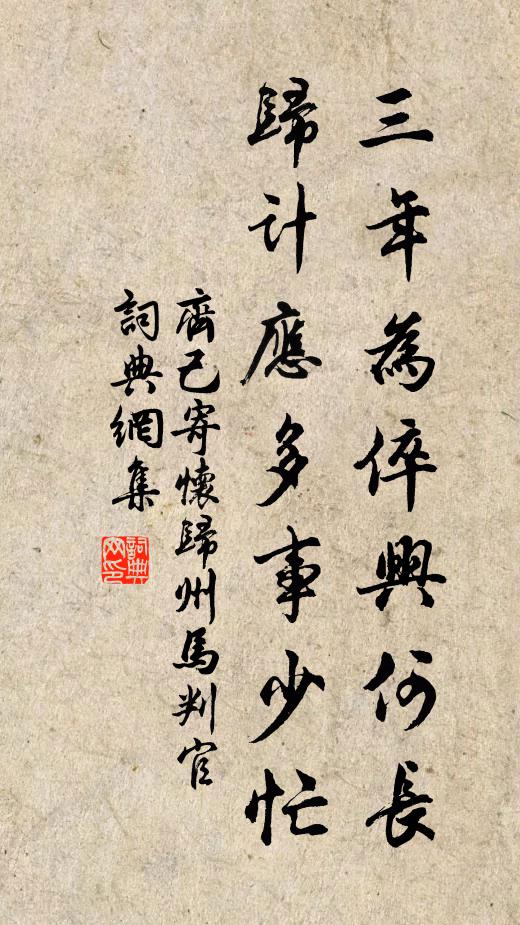 三年為倅興何長
歸計應多事少忙
齊己寄懷歸州馬判官
詞典網集
詞典网印